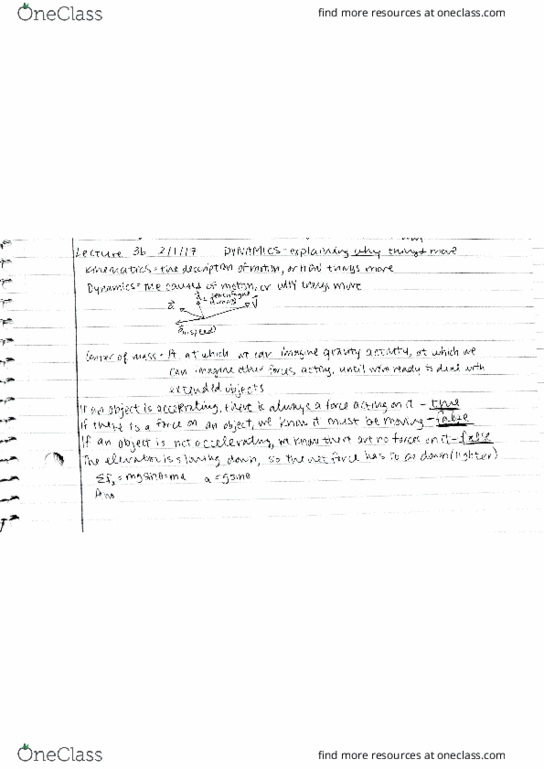 OneClass
find more resources at oneclass.com
Lecture 3b 2/1/17 DYNAMICS - explaining why things move
Kinematics = the description of motion, or how things move
Dynamics = the causes of motion, or why things move
a
V
Center of mass = Pt. at which we can imagine gravity , at which we
can imagine other forces acting, until we're ready to deal with
extended objects
If an object is accelerating, there is always a force acting on it - true
If there is a force on an object, we know it must be moving - false
If an object is not accelerating, we know there are no forces on it - false
The elevator is slowing down, so the net force has to go down (lighter)
= mgsinθ = ma a = gsinθ
OneClass
find more resources at oneclass.com